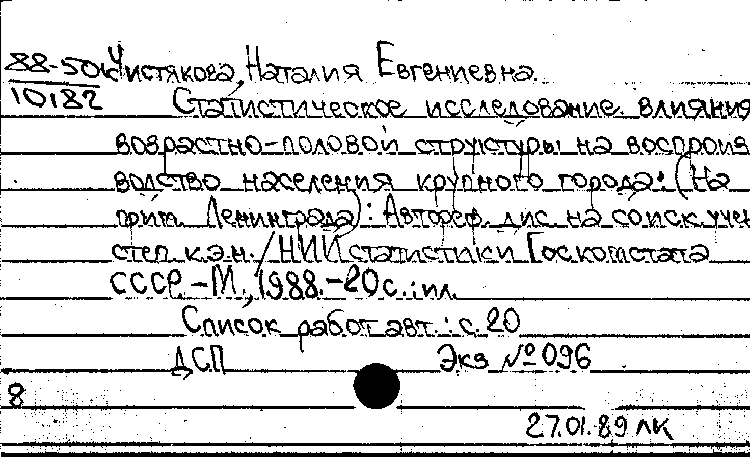 88-50к Чистякова, Наталия Евгениевна.
10182 Статистическое исследование влияния
возрастно-половой структуры на воспроиз
водство населения крупного города: (На
прим. Ленинграда): Автореф. дис. на соиск. учен
степ. к.э.н. / НИИ статистики Госкомстата
СССР. - М., 1988. - 20 с.: ил.
Список работ авт.: с. 20
ДСП Экз №096
8
27.01.89 ЛК